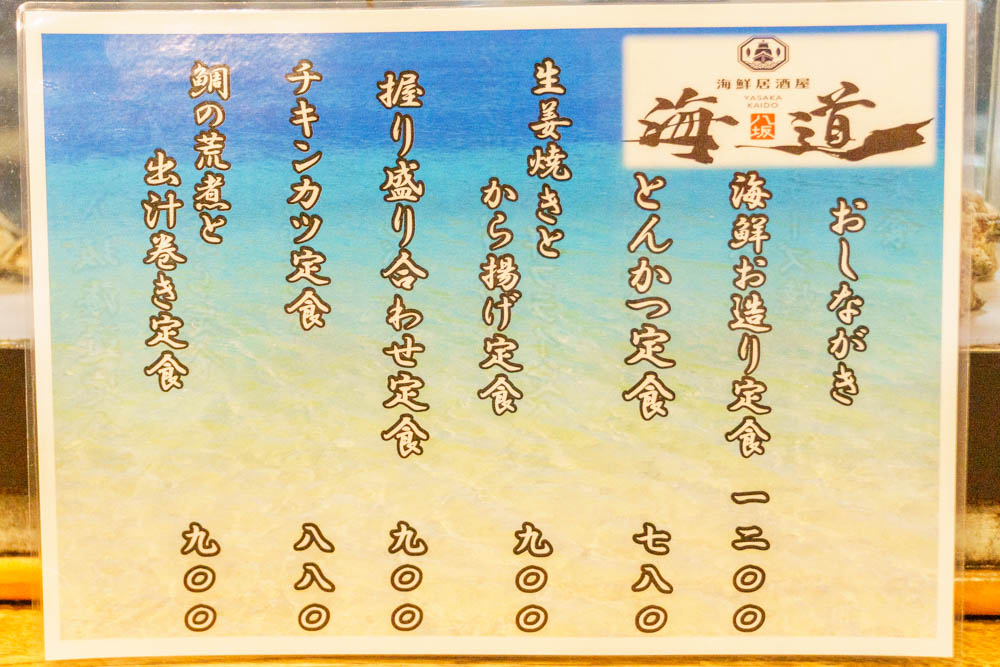 海鮮居酒屋
YASAKA
KAIDO
海八坂道
おしながき
海鮮お造り定食 一二〇〇
とんかつ定食 七八〇
生姜焼きと
から揚げ定食 九〇〇
握り盛り合わせ定食 九〇〇
チキンカツ定食 八八〇
鯛の荒煮と
出汁巻き定食 九〇〇